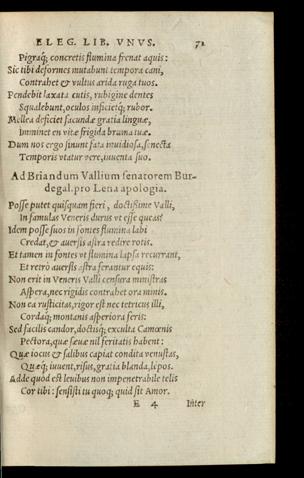 ELEG. LIB. VNVS. 71
Pigraq; concretis flumina frenat aquis:
Sic tibi deformes mutabunt tempora cani,
Contrahet & vultus arida ruga tuos.
Pendebit laxata cutis, rubigine dentes
Squalebunt, oculos inficietq; rubor.
Mellea deficiet facundæ gratia linguæ,
Imminet en vitæ frigida bruma tuæ.
Dum nos ergo sinunt fata inuidiosa, senecta
Temporis vtatur vere, iuuenta suo.
Ad Briandum Vallium senatorem Bur-
degal. pro Lena apologia.
Posse putet quisquam fieri, doctissime Valli,
In famulas Veneris durus vt esse queas?
Idem posse suos in fontes flumina labi
Credat, & auersis astra redire rotis.
Et tamen in fontes vt flumina lapsa recurrant,
Et retrò auersis astra ferantur equis:
Non erit in Veneris Valli censura ministras
Aspera, nec rigidis contrahet ora minis.
Non ea rusticitas, rigor est nec tetricus illi,
Cordaq; montanis asperiora feris:
Sed facilis candor, doctisq; exculta Camœnis
Pectora, quæ sæuæ nil feritatis habent:
Quæ iocus & salibus capiat condita venustas,
Quæq; iuuent, risus, gratia blanda, lepos.
Adde quòd est leuibus non impenetrabile telis
Cor tibi: sensisti tu quoq; quid sit Amor.
E 4 Inter